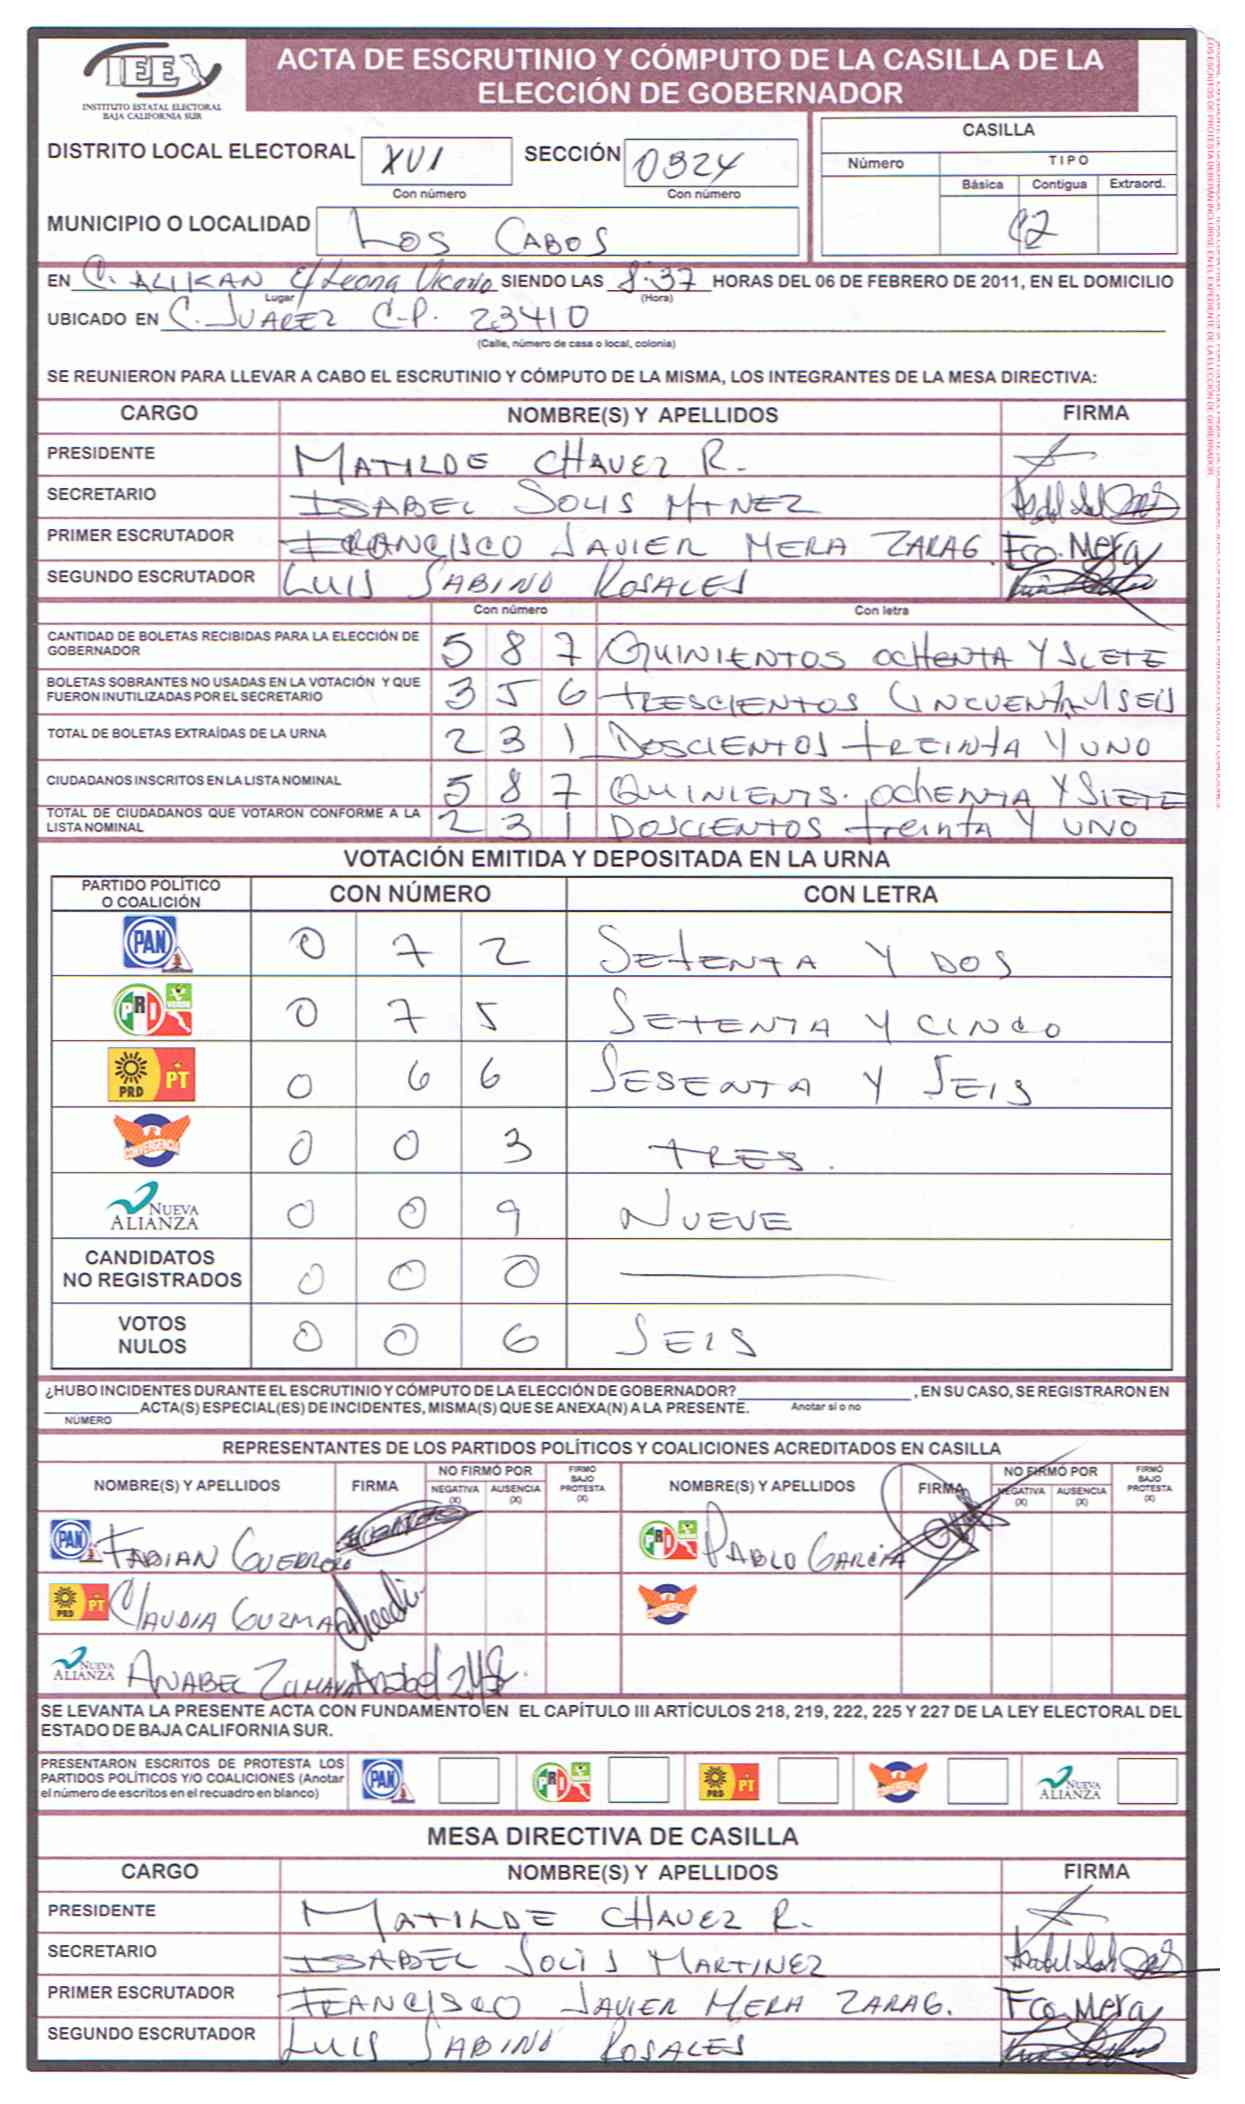 IEE
INSTITUTO ESTATAL ELECTORAL
BAJA CALIFORNIA SUR
ACTA DE ESCRUTINIO Y CÓMPUTO DE LA CASILLA DE LA
ELECCIÓN DE GOBERNADOR
DISTRITO LOCAL ELECTORAL XVI SECCIÓN 0324
Con número Con número
CASILLA
Número TIPO
Básica Contigua Extraord.
C2
MUNICIPIO O LOCALIDAD LOS CABOS
EN C. ALIKAN E/ Leona Vicario SIENDO LAS 8:37 HORAS DEL 06 DE FEBRERO DE 2011, EN EL DOMICILIO
Lugar (Hora)
UBICADO EN C. JUAREZ C.P. 23410
(Calle, número de casa o local, colonia)
SE REUNIERON PARA LLEVAR A CABO EL ESCRUTINIO Y CÓMPUTO DE LA MISMA, LOS INTEGRANTES DE LA MESA DIRECTIVA:
CARGO NOMBRE(S) Y APELLIDOS FIRMA
PRESIDENTE MATILDE CHAVEZ R.
SECRETARIO ISABEL SOLIS MTNEZ
PRIMER ESCRUTADOR FRANCISCO JAVIER MERA ZARAG. Fco. Mera
SEGUNDO ESCRUTADOR LUIS SABINO ROSALES
Con número Con letra
CANTIDAD DE BOLETAS RECIBIDAS PARA LA ELECCIÓN DE
GOBERNADOR 5 8 7 QUINIENTOS OCHENTA Y SIETE
BOLETAS SOBRANTES NO USADAS EN LA VOTACIÓN Y QUE
FUERON INUTILIZADAS POR EL SECRETARIO 3 5 6 TRESCIENTOS CINCUENTA Y SEIS
TOTAL DE BOLETAS EXTRAÍDAS DE LA URNA 2 3 1 DOSCIENTOS TREINTA Y UNO
CIUDADANOS INSCRITOS EN LA LISTA NOMINAL 5 8 7 QUINIENTS. OCHENTA Y SIETE
TOTAL DE CIUDADANOS QUE VOTARON CONFORME A LA
LISTA NOMINAL 2 3 1 DOSCIENTOS treinta Y UNO
VOTACIÓN EMITIDA Y DEPOSITADA EN LA URNA
PARTIDO POLÍTICO
O COALICIÓN CON NÚMERO CON LETRA
PAN 0 7 2 SETENTA Y DOS
PRI VERDE 0 7 5 SETENTA Y CINCO
PRD PT 0 6 6 SESENTA Y SEIS
CONVERGENCIA 0 0 3 TRES.
NUEVA
ALIANZA 0 0 9 NUEVE
CANDIDATOS
NO REGISTRADOS 0 0 0
VOTOS
NULOS 0 0 6 SEIS
¿HUBO INCIDENTES DURANTE EL ESCRUTINIO Y CÓMPUTO DE LA ELECCIÓN DE GOBERNADOR? , EN SU CASO, SE REGISTRARON EN
ACTA(S) ESPECIAL(ES) DE INCIDENTES, MISMA(S) QUE SE ANEXA(N) A LA PRESENTE. Anotar sí o no
NÚMERO
REPRESENTANTES DE LOS PARTIDOS POLÍTICOS Y COALICIONES ACREDITADOS EN CASILLA
NOMBRE(S) Y APELLIDOS FIRMA NO FIRMÓ POR NEGATIVA (X) AUSENCIA (X) FIRMÓ BAJO PROTESTA (X) NOMBRE(S) Y APELLIDOS FIRMA NO FIRMÓ POR NEGATIVA (X) AUSENCIA (X) FIRMÓ BAJO PROTESTA (X)
PAN FABIAN GUERRERO PRI VERDE PABLO GARCIA
PRD PT CLAUDIA GUZMAN CONVERGENCIA
NUEVA
ALIANZA ANABEL ZUMAYA
SE LEVANTA LA PRESENTE ACTA CON FUNDAMENTO EN EL CAPÍTULO III ARTÍCULOS 218, 219, 222, 225 Y 227 DE LA LEY ELECTORAL DEL
ESTADO DE BAJA CALIFORNIA SUR.
PRESENTARON ESCRITOS DE PROTESTA LOS
PARTIDOS POLÍTICOS Y/O COALICIONES (Anotar
el número de escritos en el recuadro en blanco) PAN PRI PRD PT CONVERGENCIA NUEVA ALIANZA
MESA DIRECTIVA DE CASILLA
CARGO NOMBRE(S) Y APELLIDOS FIRMA
PRESIDENTE MATILDE CHAVEZ R.
SECRETARIO ISABEL SOLIS MARTINEZ
PRIMER ESCRUTADOR FRANCISCO JAVIER MERA ZARAG. Fco. Mera
SEGUNDO ESCRUTADOR LUIS SABINO ROSALES